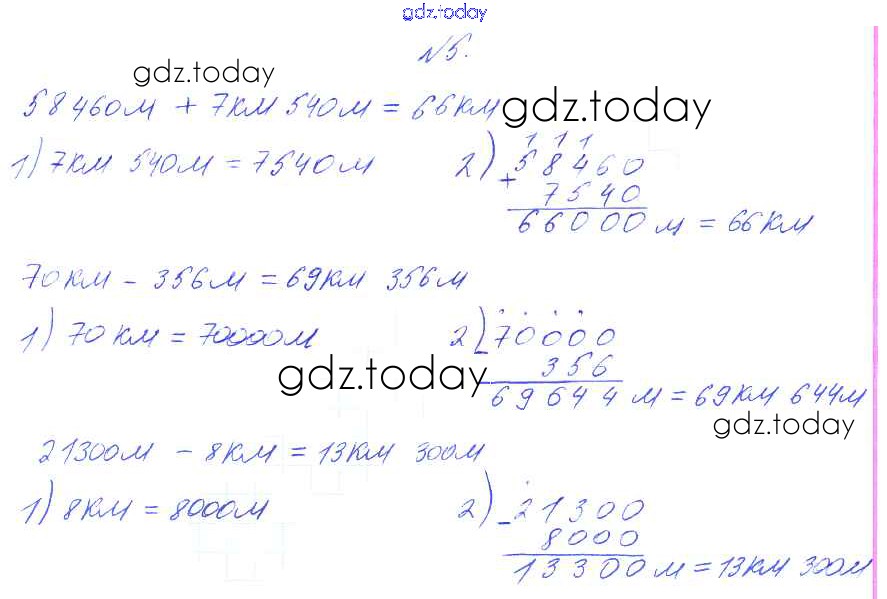 gdz.today
№5.
gdz.today
58460м + 7км 540м = 66км
gdz.today
1) 7км 540м = 7540м
2) 111
+ 58460
7540
66000 м = 66км
70км - 356м = 69км 356м
1) 70км = 70000м
2) - 70000
356
69644 м = 69км 644м
gdz.today
gdz.today
21300м - 8км = 13км 300м
1) 8км = 8000м
2) - 21300
8000
13300 м = 13км 300м